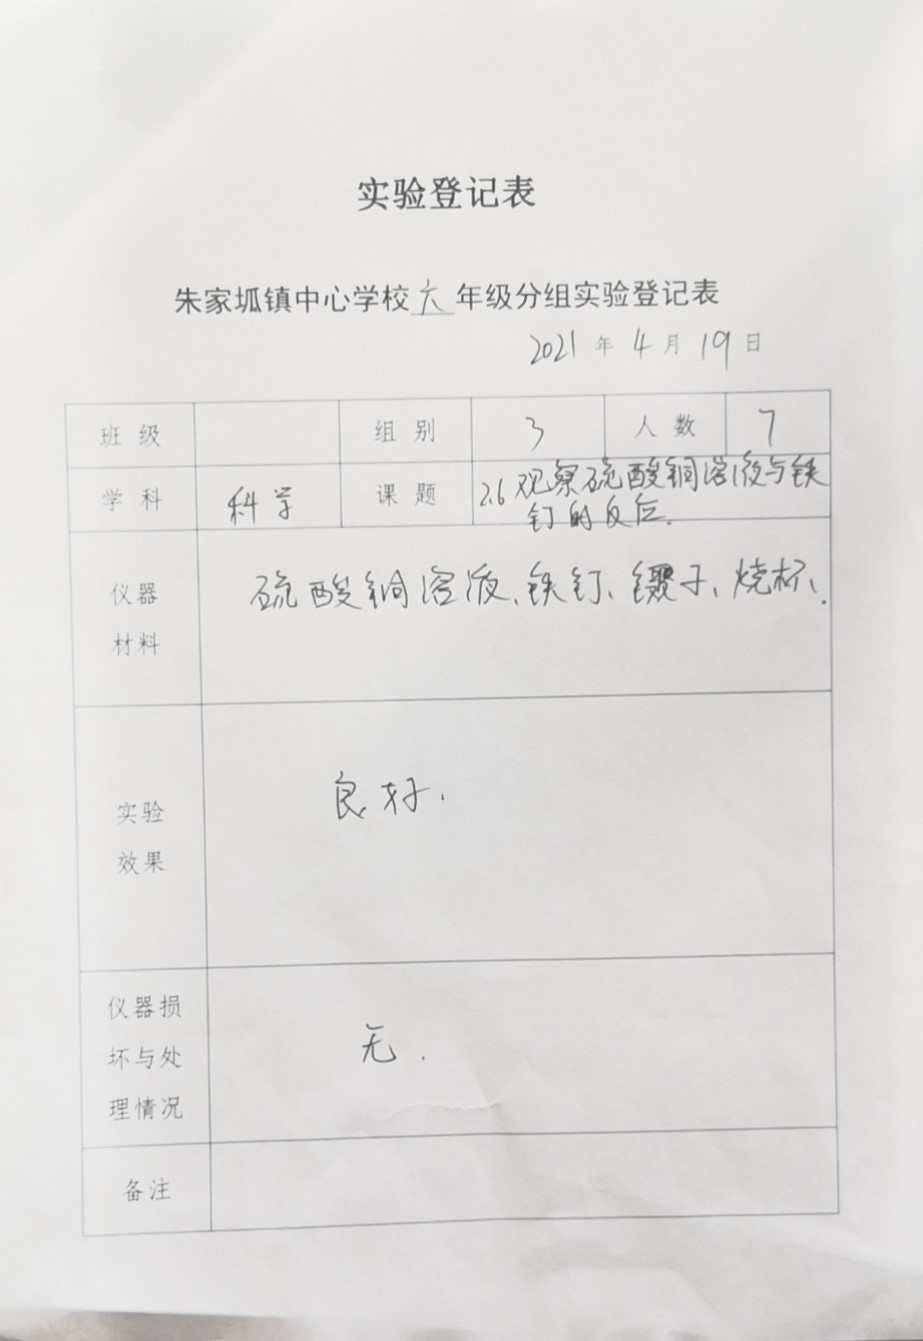 实验登记表
朱家坬镇中心学校六年级分组实验登记表
2021年4月19日
班级 组别 3 人数 7
学科 科学 课题 2.6观察硫酸铜溶液与铁
钉的反应.
仪器
材料
硫酸铜溶液、铁钉、镊子、烧杯、
实验
效果
良好.
仪器损
坏与处
理情况
无.
备注